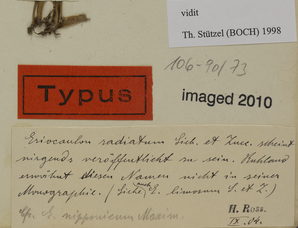 vidit
Th. Stützel (BOCH) 1998
106-90/73
Typus
imaged 2010
Eriocaulon radiatum Sieb. et Zucc. scheint
nirgends veröffentlicht zu sein. Ruhland
erwähnt diesen Namen nicht in seiner
Monographie. (Siehe auch E. limosum S. et Z.)
E. nipponicum Maxim.
H. Ross.
IX. 04.